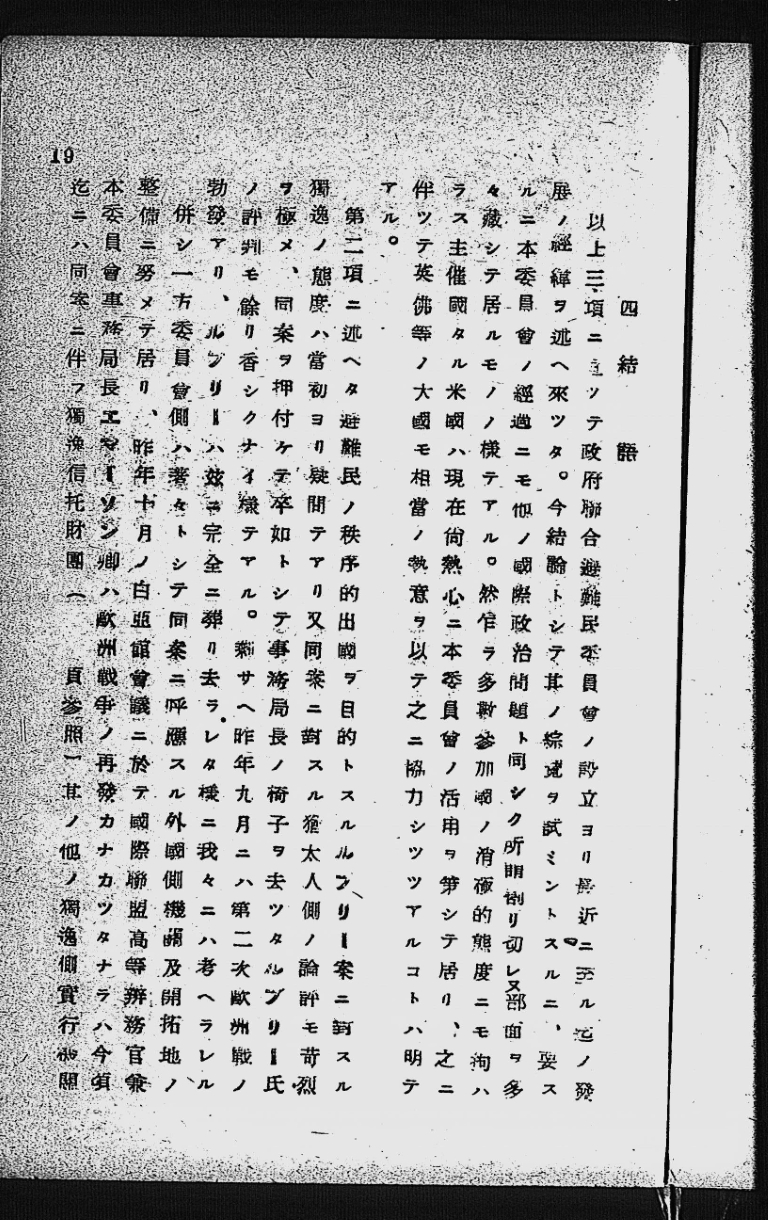 四 結 語
以上三項ニヨツテ政府聯合避難民委員會ノ設立ヨリ最近ニ至ル迄ノ發
展ノ經緯ヲ述ヘ來ツタ。今結論トシテ其ノ綜覽ヲ試ミントスルニ、要ス
ルニ本委員會ノ經過ニモ他ノ國際政治問題ト同シク所謂割リ切レヌ部面ヲ多
々藏シテ居ルモノノ樣テアル。然乍ラ多數參加國ノ消極的態度ニモ拘ハ
ラス主催國タル米國ハ現在尙熱心ニ本委員會ノ活用ヲ策シテ居リ、之ニ
伴ツテ英佛等ノ大國モ相當ノ熱意ヲ以テ之ニ協力シツツアルコトハ明テ
アル。
第二項ニ述ヘタ避難民ノ秩序的出國ヲ目的トスルルブリー案ニ對スル
獨逸ノ態度ハ當初ヨリ疑問テアリ又同案ニ對スル猶太人側ノ論評モ苛烈
ヲ極メ、同案ヲ押付ケテ卒如トシテ事務局長ノ椅子ヲ去ツタルブリー氏
ノ評判モ餘リ香シクナイ樣テアル。剩サヘ昨年九月ニハ第二次歐洲戰ノ
勃發アリ、ルブリーハ玆ニ完全ニ葬リ去ラレタ樣ニ我々ニハ考ヘラレル
併シ一方委員會側ハ著々トシテ同案ニ呼應スル外國側機關及開拓地ノ
整備ニ努メテ居リ、昨年十月ノ白亞館會議ニ於テ國際聯盟高等辨務官兼
本委員會事務局長エマーソン卿ハ歐洲戰爭ノ再發カナカツタナラハ今頃
迄ニハ同案ニ伴フ獨逸信托財團(　頁參照)其ノ他ノ獨逸側實行機關
19